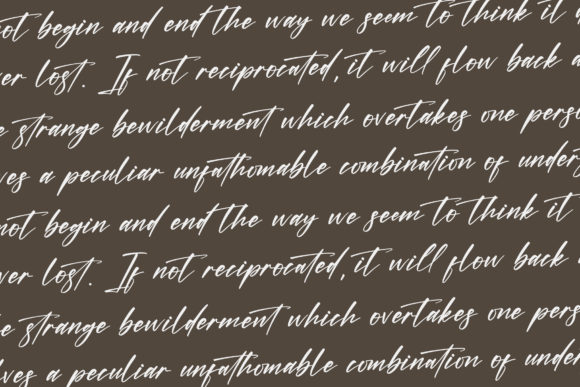 not begin and end the way we seem to think it
ver lost. If not reciprocated, it will flow back
strange bewilderment which overtakes one pers
ves a peculiar unfathomable combination of unders
not begin and end the way we seem to think it
ver lost. If not reciprocated, it will flow back
strange bewilderment which overtakes one pers
lves a peculiar unfathomable combination of under